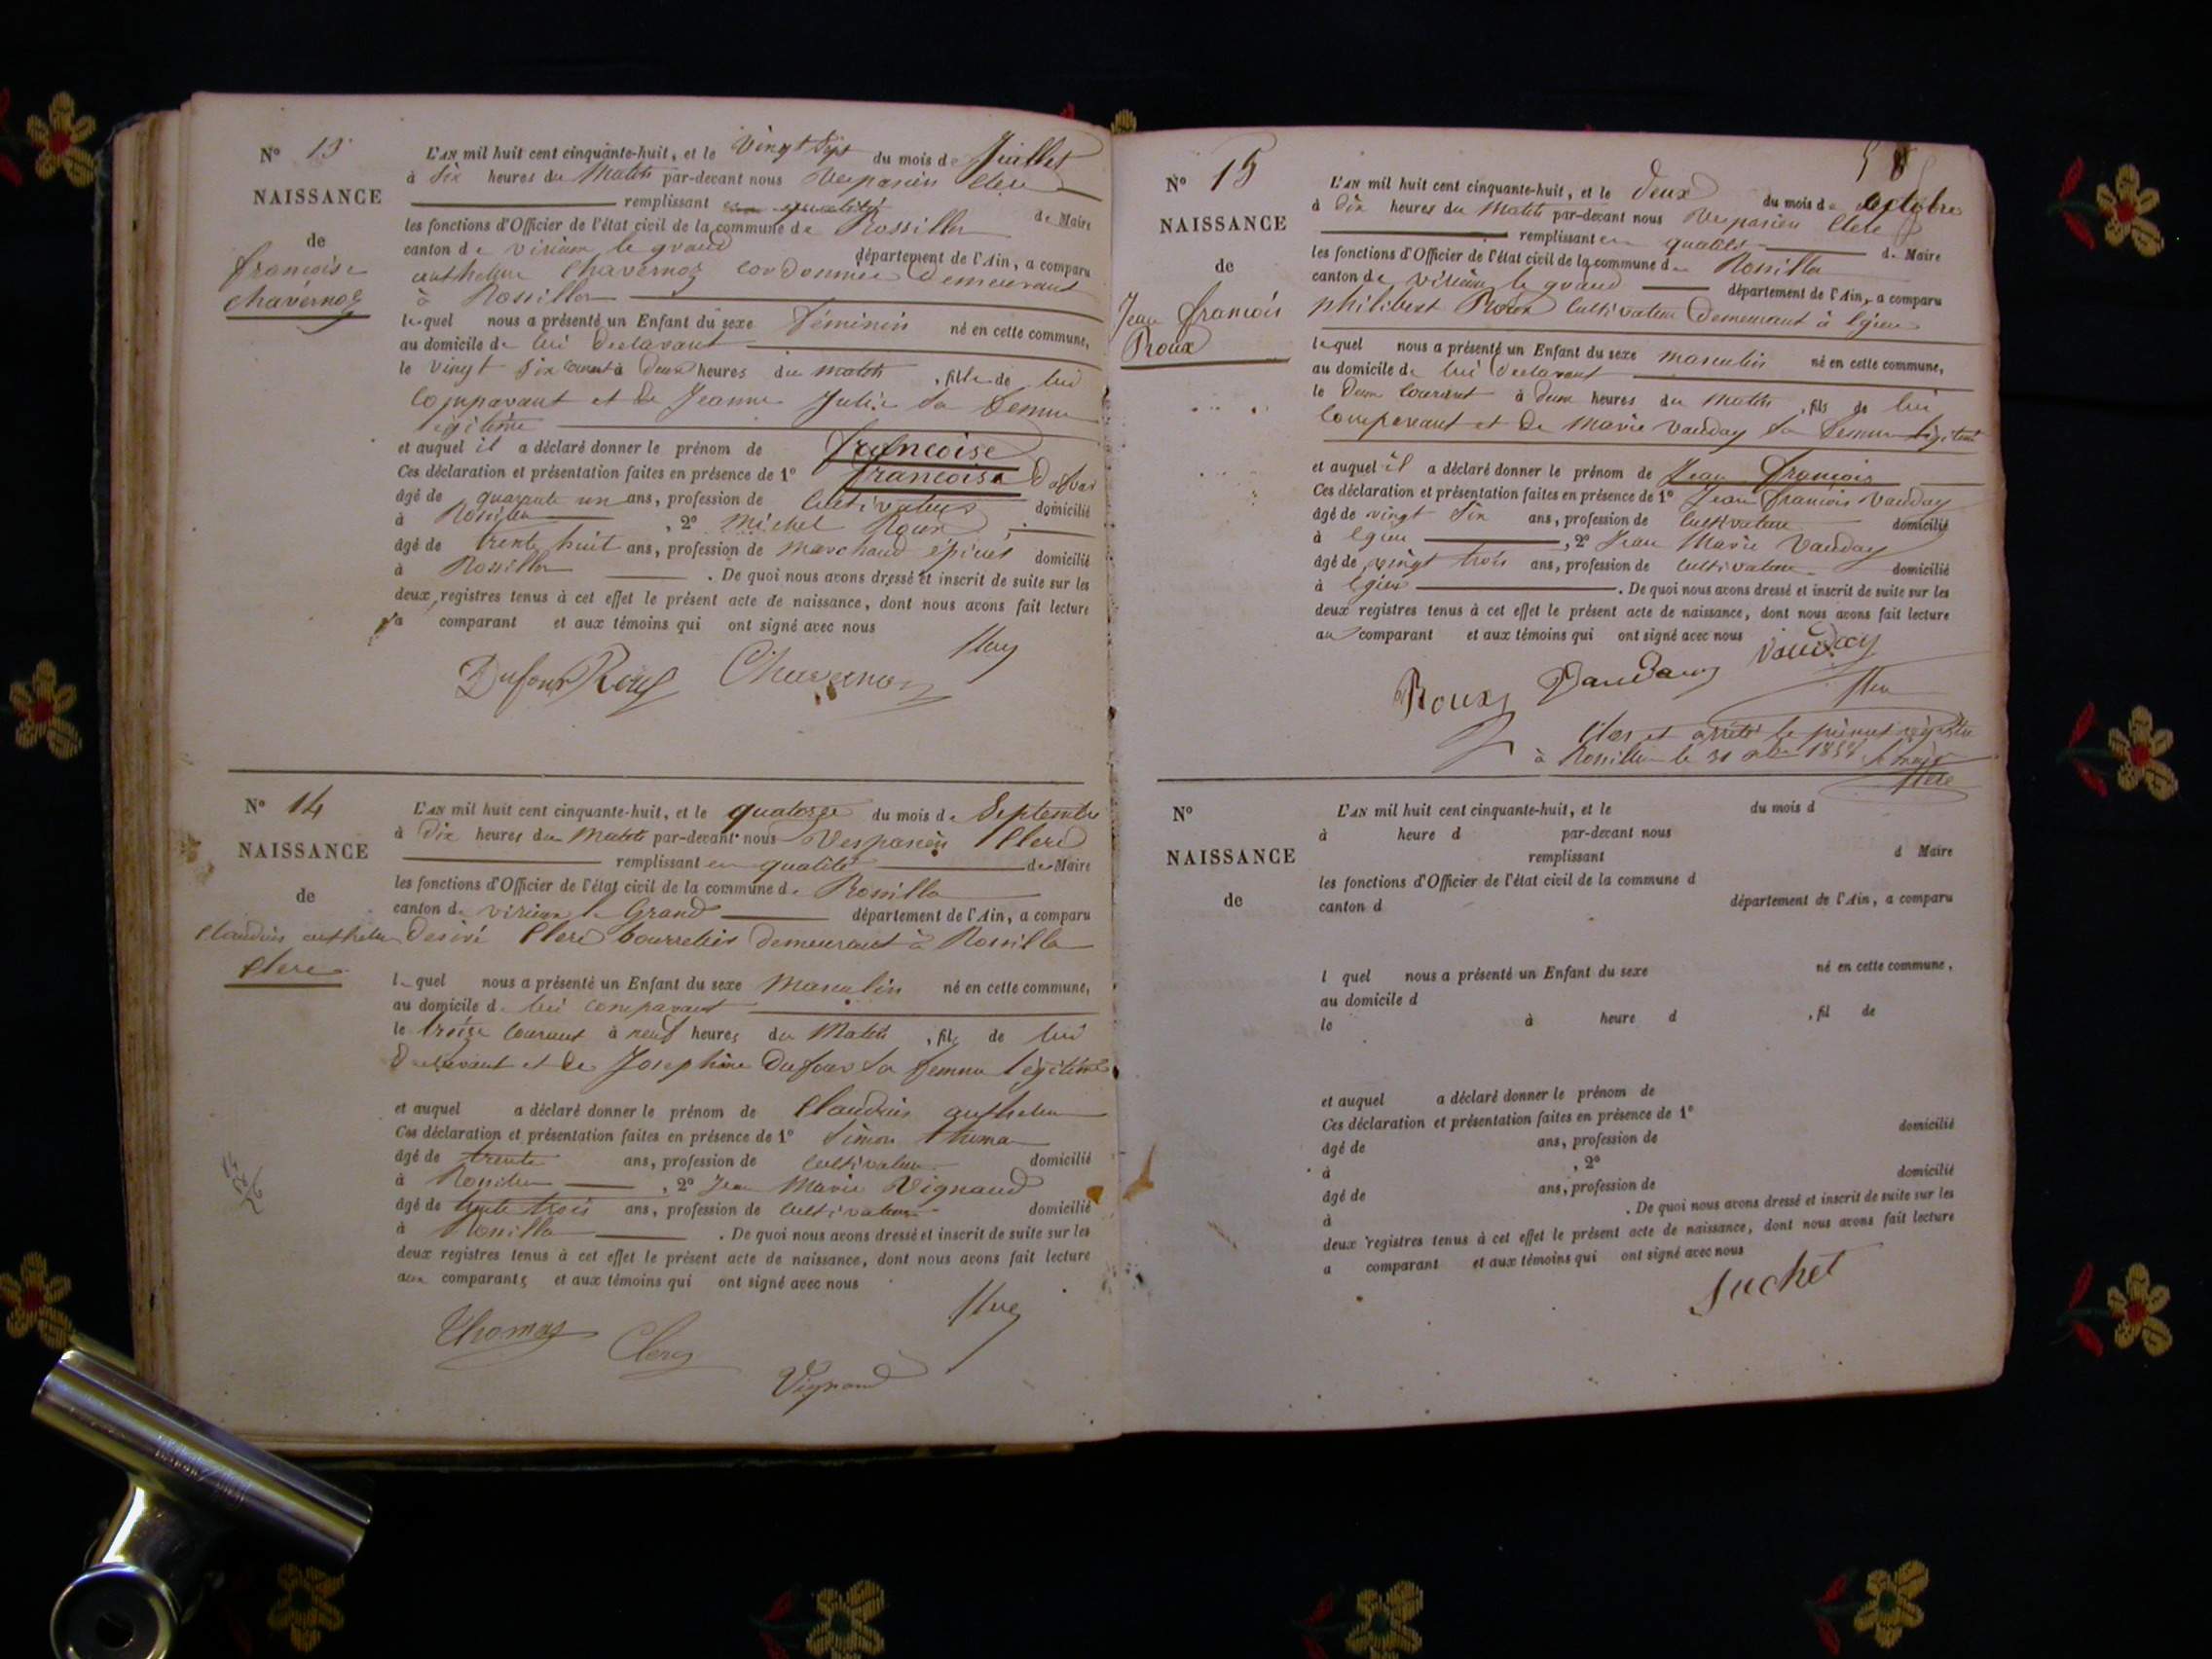 N° 13
NAISSANCE
de
francoise
chavernoz
L'AN mil huit cent cinquante-huit, et le vingt sept du mois de Juillet
à dix heures du Matin par-devant nous Vespasien Clerc
remplissant en qualité de Maire
les fonctions d'Officier de l'état civil de la commune de Rossillon
canton de virieu le grand département de l'Ain, a comparu
anthelme Chavernoz cordonnier demeurant
à Rossillon
lequel nous a présenté un Enfant du sexe féminin né en cette commune,
au domicile de lui déclarant
le vingt six courant à deux heures du matin, fille de lui
comparant et de Jeanne Julie sa femme
légitime
et auquel il a déclaré donner le prénom de francoise
Ces déclaration et présentation faites en présence de 1° francois Dufour
âgé de quarante un ans, profession de cultivateur domicilié
à Rossillon, 2° Michel Roux
âgé de trente huit ans, profession de marchand épicier domicilié
à Rossillon. De quoi nous avons dressé et inscrit de suite sur les
deux registres tenus à cet effet le présent acte de naissance, dont nous avons fait lecture
a comparant et aux témoins qui ont signé avec nous
Dufour Roux Chavernoz
N° 14
NAISSANCE
de
Claudius anthelme
Clerc
L'AN mil huit cent cinquante-huit, et le quatorze du mois de Septembre
à dix heures du Matin par-devant nous Vespasien Clerc
remplissant en qualité de Maire
les fonctions d'Officier de l'état civil de la commune de Rossillon
canton de virieu le Grand département de l'Ain, a comparu
desiré Clerc bourrelier demeurant à Rossillon
lequel nous a présenté un Enfant du sexe Masculin né en cette commune,
au domicile de lui comparant
le treize courant à neuf heures du Matin, fils de lui
déclarant et de Josephine Dufour sa femme légitime
et auquel a déclaré donner le prénom de Claudius anthelme
Ces déclaration et présentation faites en présence de 1° Simon thomas
âgé de trente ans, profession de cultivateur domicilié
à Rossillon, 2° Jean Marie Vignaud
âgé de trente trois ans, profession de cultivateur domicilié
à Rossillon. De quoi nous avons dressé et inscrit de suite sur les
deux registres tenus à cet effet le présent acte de naissance, dont nous avons fait lecture
aux comparants et aux témoins qui ont signé avec nous
Thomas Clerc
Vignaud
58
N° 15
NAISSANCE
de
Jean francois
Roux
L'AN mil huit cent cinquante-huit, et le deux du mois de octobre
à dix heures du Matin par-devant nous Vespasien Clerc
remplissant en qualité de Maire
les fonctions d'Officier de l'état civil de la commune de Rossillon
canton de virieu le grand département de l'Ain, a comparu
philibert Roux cultivateur demeurant à Egieu
lequel nous a présenté un Enfant du sexe masculin né en cette commune,
au domicile de lui déclarant
le deux courant à deux heures du Matin, fils de lui
comparant et de Marie Vauday sa femme légitime
et auquel il a déclaré donner le prénom de Jean francois
Ces déclaration et présentation faites en présence de 1° Jean francois Vauday
âgé de vingt six ans, profession de cultivateur domicilié
à Egieu, 2° Jean Marie Vauday
âgé de vingt trois ans, profession de cultivateur domicilié
à Egieu. De quoi nous avons dressé et inscrit de suite sur les
deux registres tenus à cet effet le présent acte de naissance, dont nous avons fait lecture
au comparant et aux témoins qui ont signé avec nous
Roux Vauday Vauday
Clos et arrêté le présent registre
à Rossillon le 31 1858 le maire
Clerc
N°
NAISSANCE
de
L'AN mil huit cent cinquante-huit, et le du mois d
à heure d par-devant nous
remplissant d Maire
les fonctions d'Officier de l'état civil de la commune d
canton d département de l'Ain, a comparu
l quel nous a présenté un Enfant du sexe né en cette commune,
au domicile d
le à heure d , fil de
et auquel a déclaré donner le prénom de
Ces déclaration et présentation faites en présence de 1°
âgé de ans, profession de domicilié
à , 2°
âgé de ans, profession de domicilié
à . De quoi nous avons dressé et inscrit de suite sur les
deux registres tenus à cet effet le présent acte de naissance, dont nous avons fait lecture
a comparant et aux témoins qui ont signé avec nous
Suchet